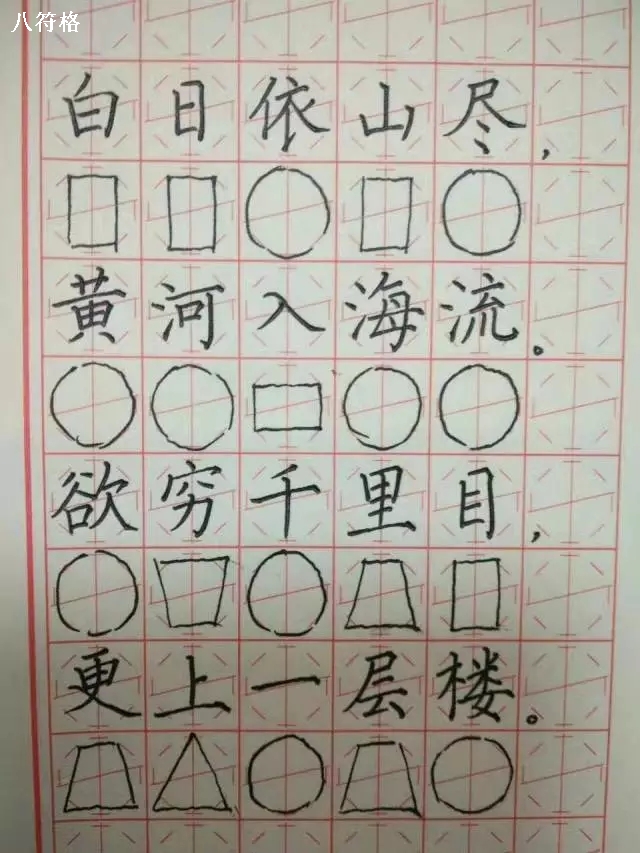 八符格
白日依山尽，
黄河入海流。
欲穷千里目，
更上一层楼。